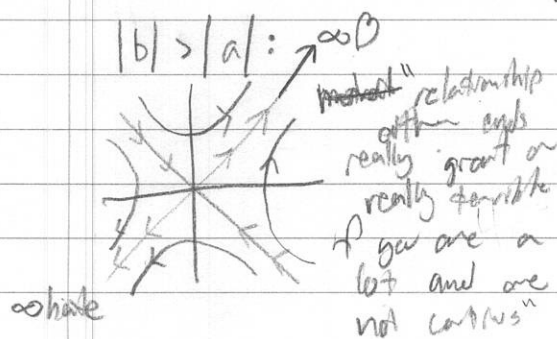 |b| > |a| :
∞♡
" relationship
either ends
really great or
really terrible
if you are a
lot and are
not cautious"
∞hate